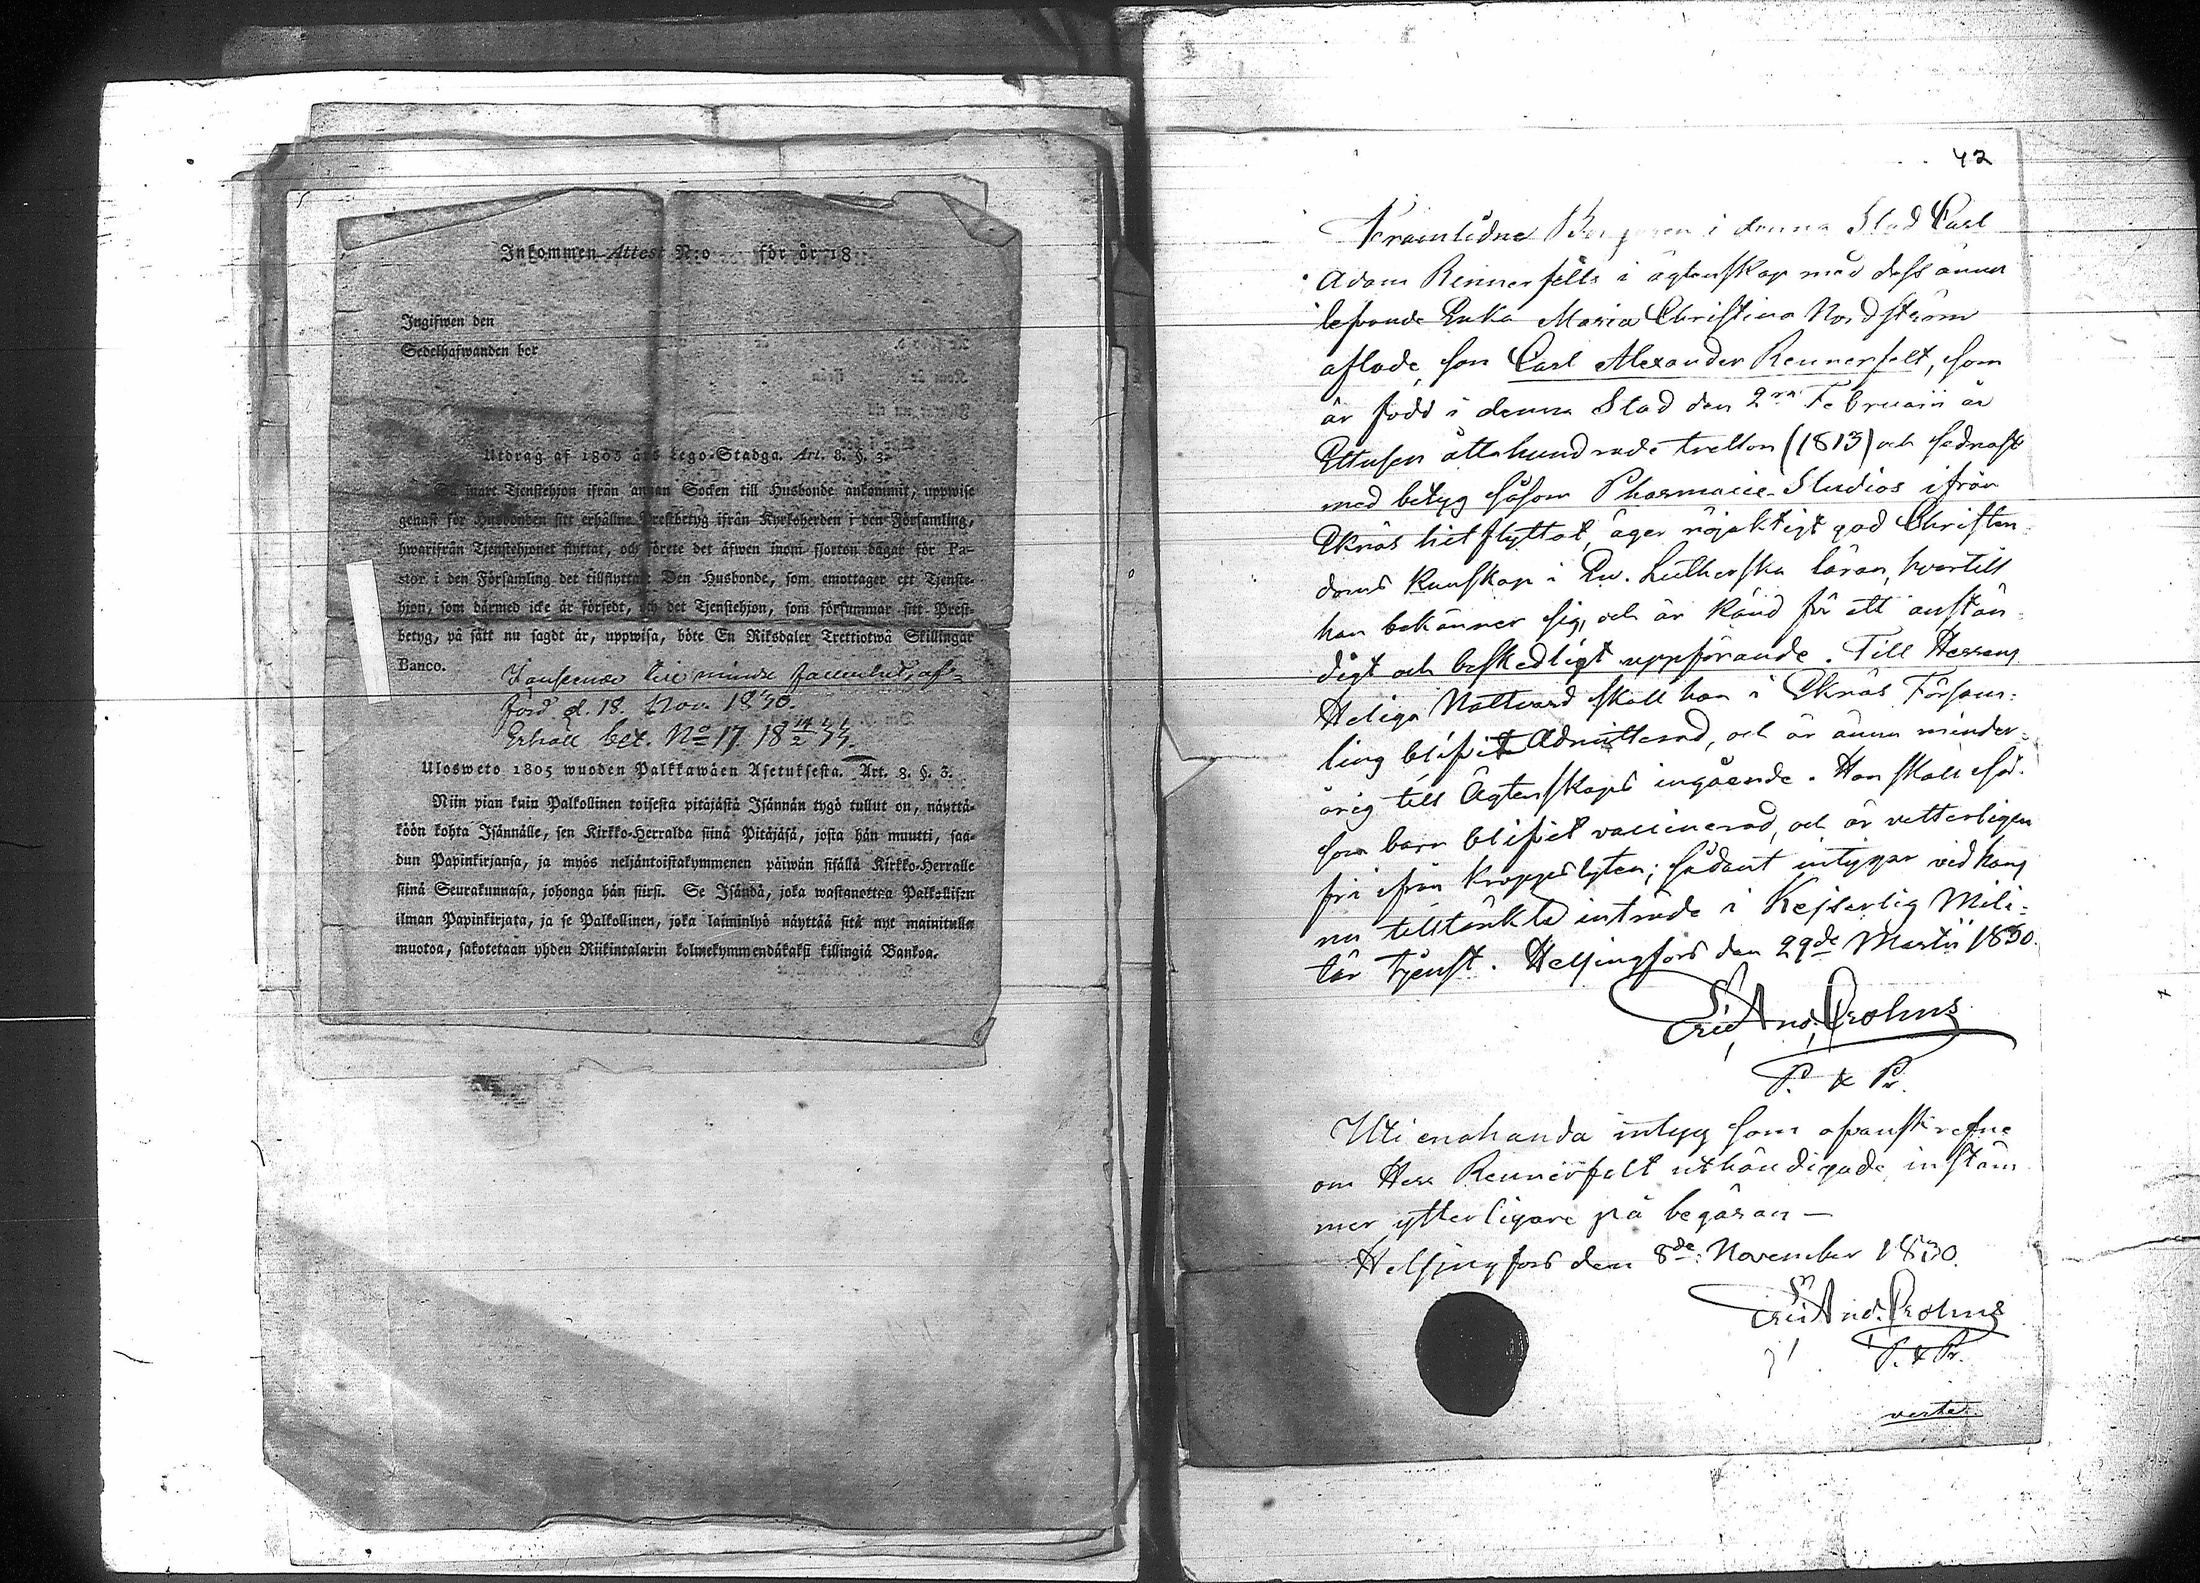 Inkommen Attest N:o för år 18
Ingifwen den
Sedelhafwanden bor
Utdrag af 1805 års Lego-Stadga. Art. 8. §. 3.
Tjenstehjon ifrån annan Socken till Husbonde ankommit, uppwise
genast för Husbonden sitt erhållne Prestbetyg ifrån Kyrkoherden i den Församling,
hwarifrån Tjenstehjonet flyttat, och förete det äfwen inom fjorton dagar för Pa-
stor i den Församling det tillflyttat. Den Husbonde, som emottager ett Tjenste-
hjon, som därmed icke är försedt, och det Tjenstehjon, som försummar sitt Prest-
betyg, på sätt nu sagdt är, uppwisa, böte En Riksdaler Trettiotwå Skillingar
Banco.
förd d. 18. Nov. 1830.
Erhåll bet. No 17
Ulosweto 1805 wuoden Palkkawäen Asetuksesta. Art. 8. §. 3.
Niin pian kuin Palkollinen toisesta pitäjästä Isännän tygö tullut on, näyttä-
köön kohta Isännälle, sen Kirkko-Herralda siinä Pitäjäsä, josta hän muutti, saa-
dun Papinkirjansa, ja myös neljäntoistakymmenen päiwän sisällä Kirkko-Herralle
siinä Seurakunnasa, johonga hän siirsi. Se Isändä, joka wastanottaa Palkollisen
ilman Papinkirjata, ja se Palkollinen, joka laiminlyö näyttää sitä nyt mainitulla
muotoa, sakotetaan yhden Riikintalarin kolmekymmendäkaksi killingiä Bankoa.
42
Framlidne Borgaren i denna Stad Carl
Adam Rennerfelts i ägtenskap med dess ännu
lefvande Enka Maria Christina Nordström
aflade son Carl Alexander Rennerfelt, som
är född i denna Stad den 2ra Februarii år
Ettusen åttahundrade tretton (1813) och sednast
med betyg såsom Pharmacie-Studios ifrån
Eknäs hit flyttat, äger nöjaktigt god Christen-
doms kunskap i Ev. Lutherska läran, hvartill
han bekänner sig, och är känd för ett anstän-
digt och beskedligt uppförande. Till Herrans
Heliga Nattvard skall han i Eknäs Försam-
ling blifvit Admitterad, och är ännu minder-
årig till Ägtenskaps ingående. Han skall så-
som barn blifvit vaccinerad, och är vetterligen
fri ifrån kroppslyten; sådant intygar vid hans
nu tilltänkta inträde i Kejserlig Mili-
tär tjenst. Helsingfors den 29de Martii 1830.
And. Crohns
P. & Pr.
Uti enahanda intyg som ofvanskrefne
om Herr Rennerfelt uthändigade, instäm-
mer ytterligare på begäran —
Helsingfors den 8de November 1830.
And. Crohns
P. & Pr.
verte